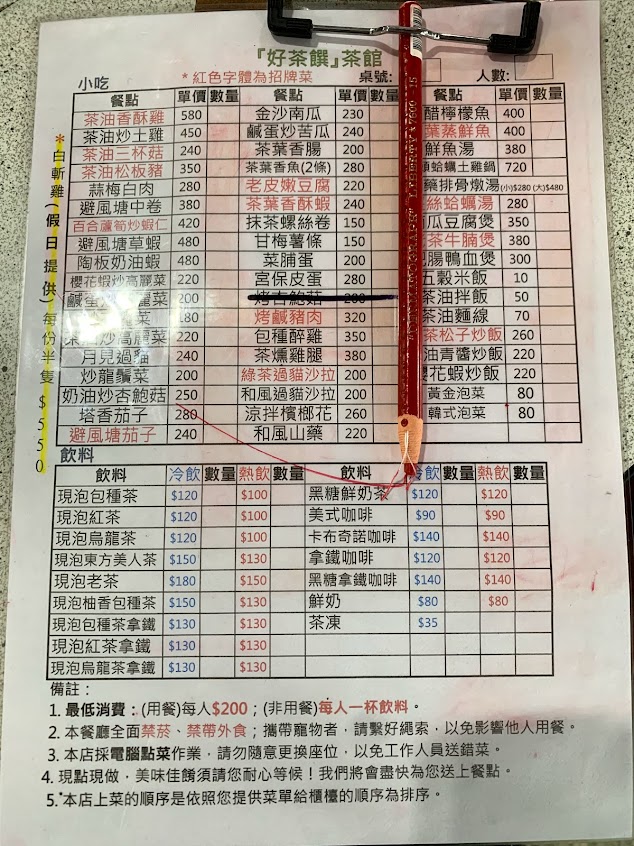 『好茶饌』茶館
小吃 *紅色字體為招牌菜 桌號: 人數:
餐點 單價 數量 餐點 單價 數量 餐點 單價 數量
茶油香酥雞 580 金沙南瓜 230 醋檸檬魚 400
茶油炒土雞 450 鹹蛋炒苦瓜 240 葉蒸鮮魚 400
茶油三杯菇 240 茶香腸 200 鮮魚湯 380
茶油松板豬 350 茶葉香魚(2條) 280 蛤蠣土雞鍋 720
蒜梅白肉 280 老皮嫩豆腐 220 藥排骨燉湯 (小)$280 (大)$480
避風塘中卷 380 茶葉香酥蝦 240 絲蛤蠣湯 280
百合蘆筍炒蝦仁 420 抹茶螺絲卷 150 瓜豆腐煲 350
避風塘草蝦 480 甘梅薯條 150 茶牛腩煲 380
陶板奶油蝦 480 菜脯蛋 200 腸鴨血煲 300
櫻花蝦炒高麗菜 220 宮保皮蛋 280 五穀米飯 10
鹹蛋 菜 200 烤杏鮑菇 200 茶油拌飯 50
菜 180 烤鹹豬肉 320 茶油麵線 70
炒高麗菜 220 包種醉雞 350 茶松子炒飯 260
月見過貓 240 茶燻雞腿 380 油青醬炒飯 220
炒龍鬚菜 200 綠茶過貓沙拉 200 櫻花蝦炒飯 220
奶油炒杏鮑菇 250 和風過貓沙拉 200 黃金泡菜 80
塔香茄子 280 涼拌檳榔花 260 韓式泡菜 80
避風塘茄子 240 和風山藥 220
*白斬雞(假日提供)每份半隻$550
飲料
飲料 冷飲 數量 熱飲 數量 飲料 冷飲 數量 熱飲 數量
現泡包種茶 $120 $100 黑糖鮮奶茶 $120 $120
現泡紅茶 $120 $100 美式咖啡 $90 $90
現泡烏龍茶 $120 $100 卡布奇諾咖啡 $140 $140
現泡東方美人茶 $150 $130 拿鐵咖啡 $120 $120
現泡老茶 $180 $150 黑糖拿鐵咖啡 $140 $140
現泡柚香包種茶 $150 $130 鮮奶 $80 $80
現泡包種茶拿鐵 $130 $130 茶凍 $35
現泡紅茶拿鐵 $130 $130
現泡烏龍茶拿鐵 $130 $130
備註:
1. 最低消費:(用餐)每人$200;(非用餐)每人一杯飲料。
2. 本餐廳全面禁菸、禁帶外食;攜帶寵物者,請繫好繩索,以免影響他人用餐。
3. 本店採電腦點菜作業,請勿隨意更換座位,以免工作人員送錯菜。
4. 現點現做,美味佳餚須請您耐心等候!我們將會盡快為您送上餐點。
5.*本店上菜的順序是依照您提供菜單給櫃檯的順序為排序。